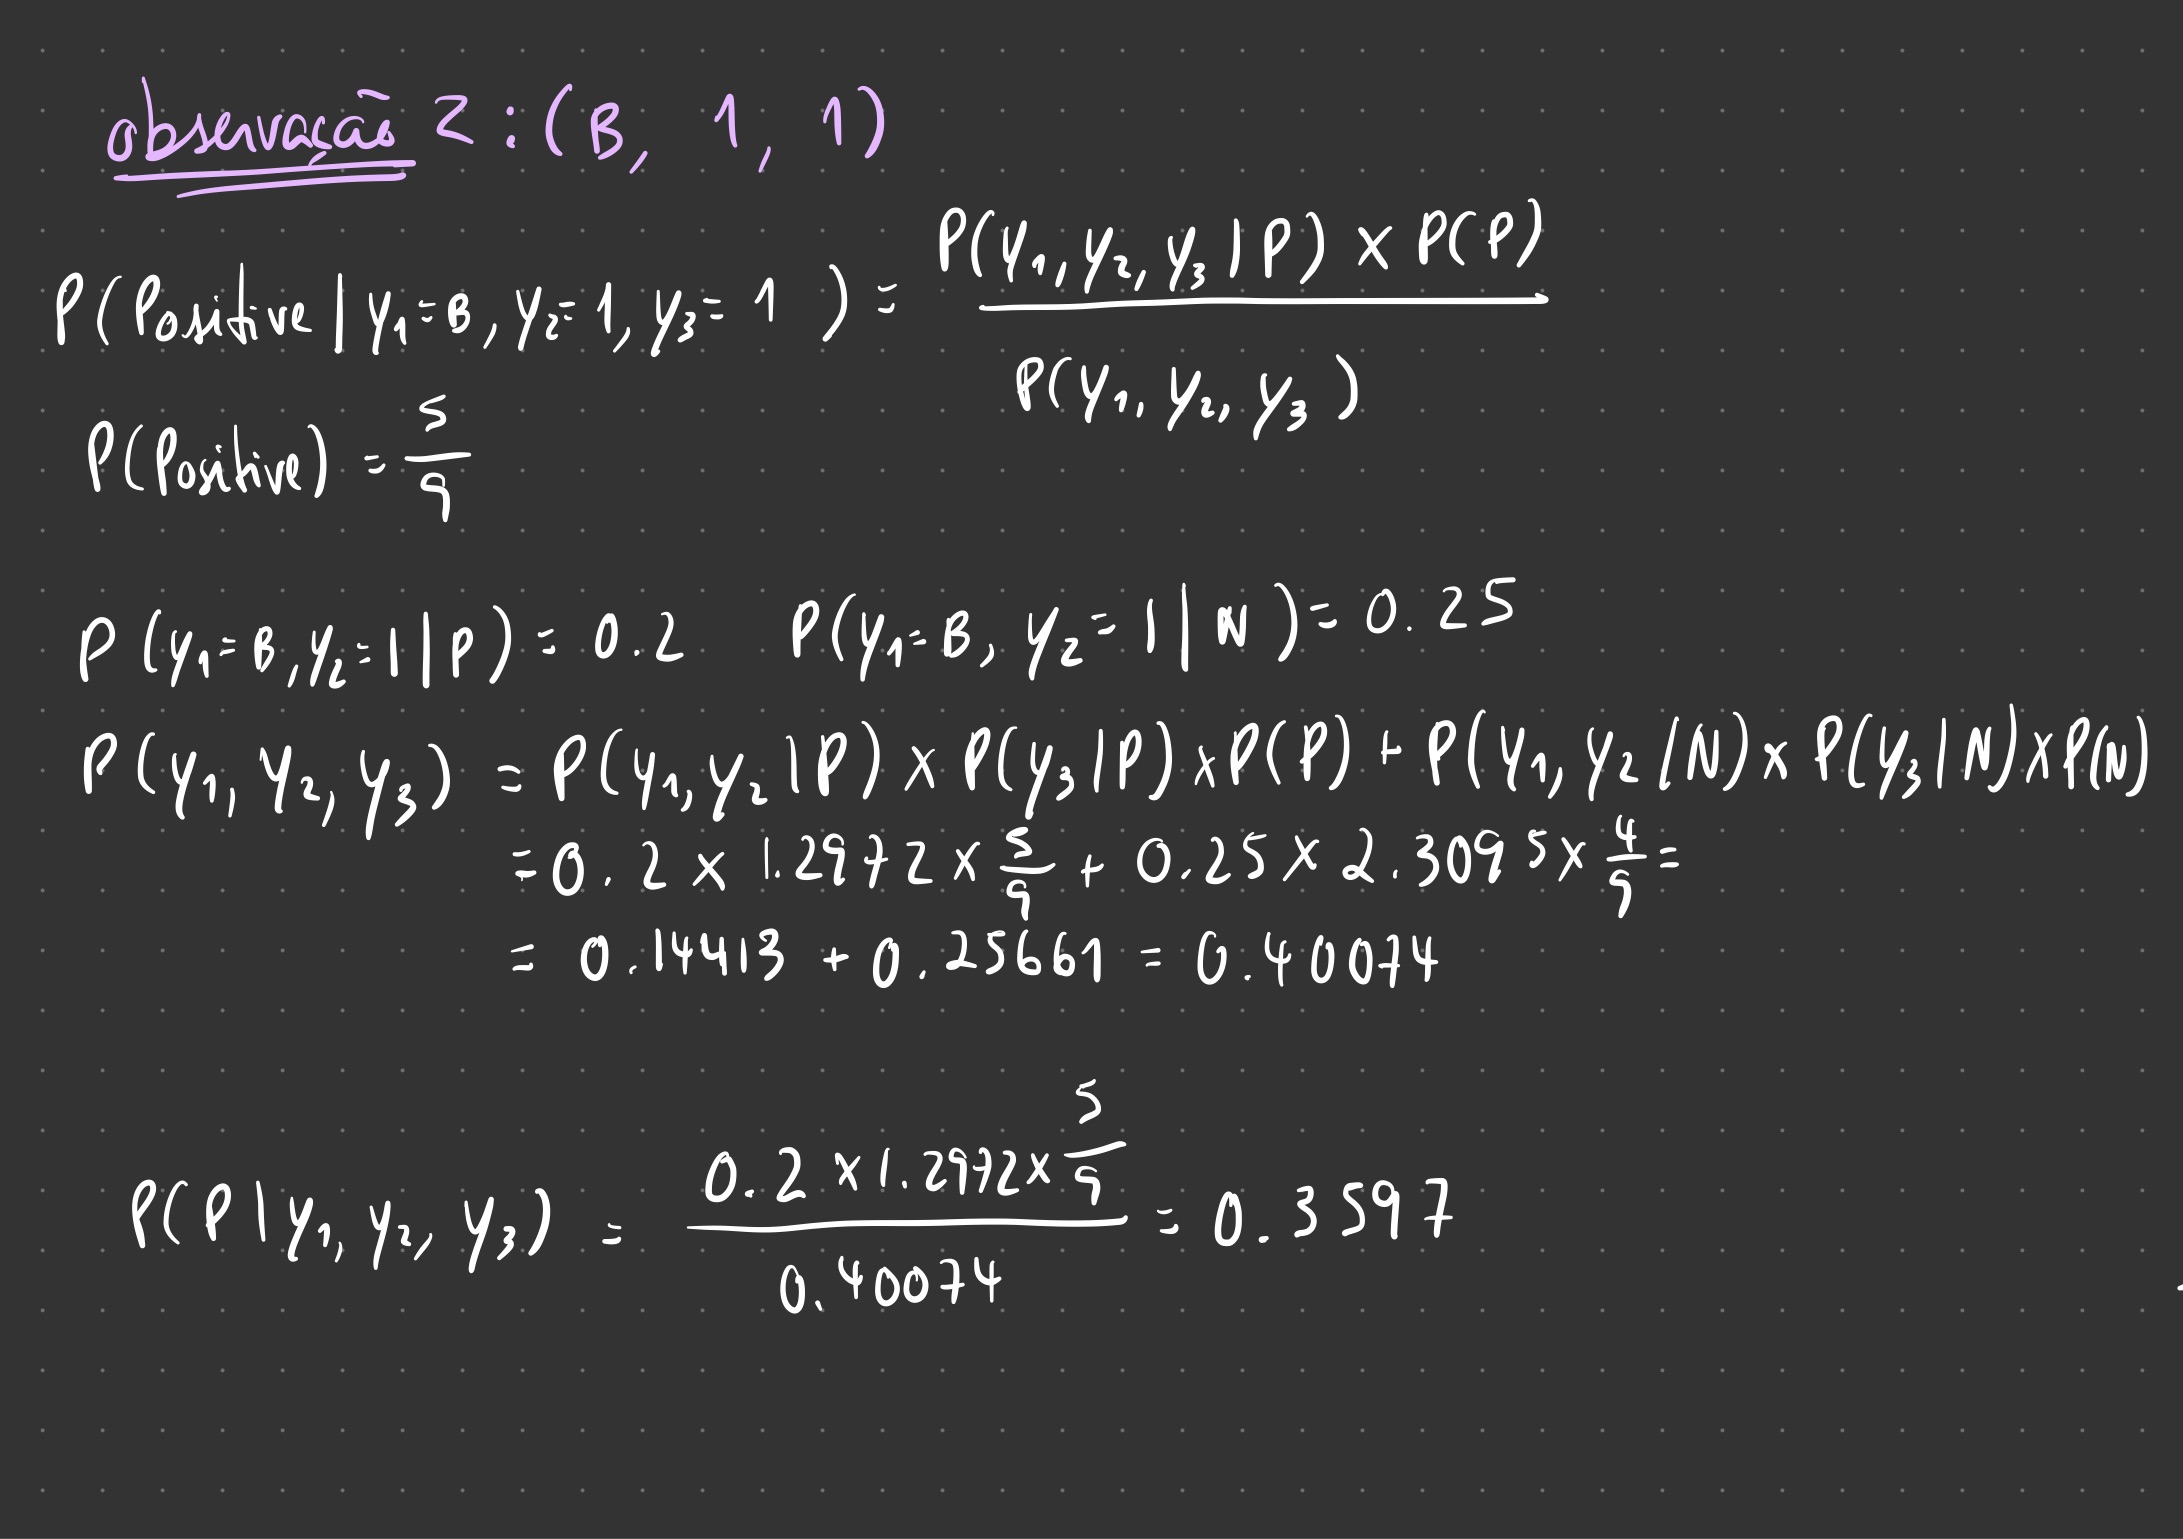 observação 2 : (B, 1, 1)
P(Positive | y₁=B, y₂=1, y₃=1) = P(y₁, y₂, y₃ | P) × P(P) / P(y₁, y₂, y₃)
P(Positive) = 5/9
P(y₁=B, y₂=1 | P) = 0.2 P(y₁=B, y₂=1 | N) = 0.25
P(y₁, y₂, y₃) = P(y₁, y₂ | P) × P(y₃ | P) × P(P) + P(y₁, y₂ | N) × P(y₃ | N) × P(N)
= 0.2 × 1.2972 × 5/9 + 0.25 × 2.3095 × 4/9 =
= 0.14413 + 0.25661 = 0.40074
P(P | y₁, y₂, y₃) = 0.2 × 1.2972 × 5/9 / 0.40074 = 0.3597